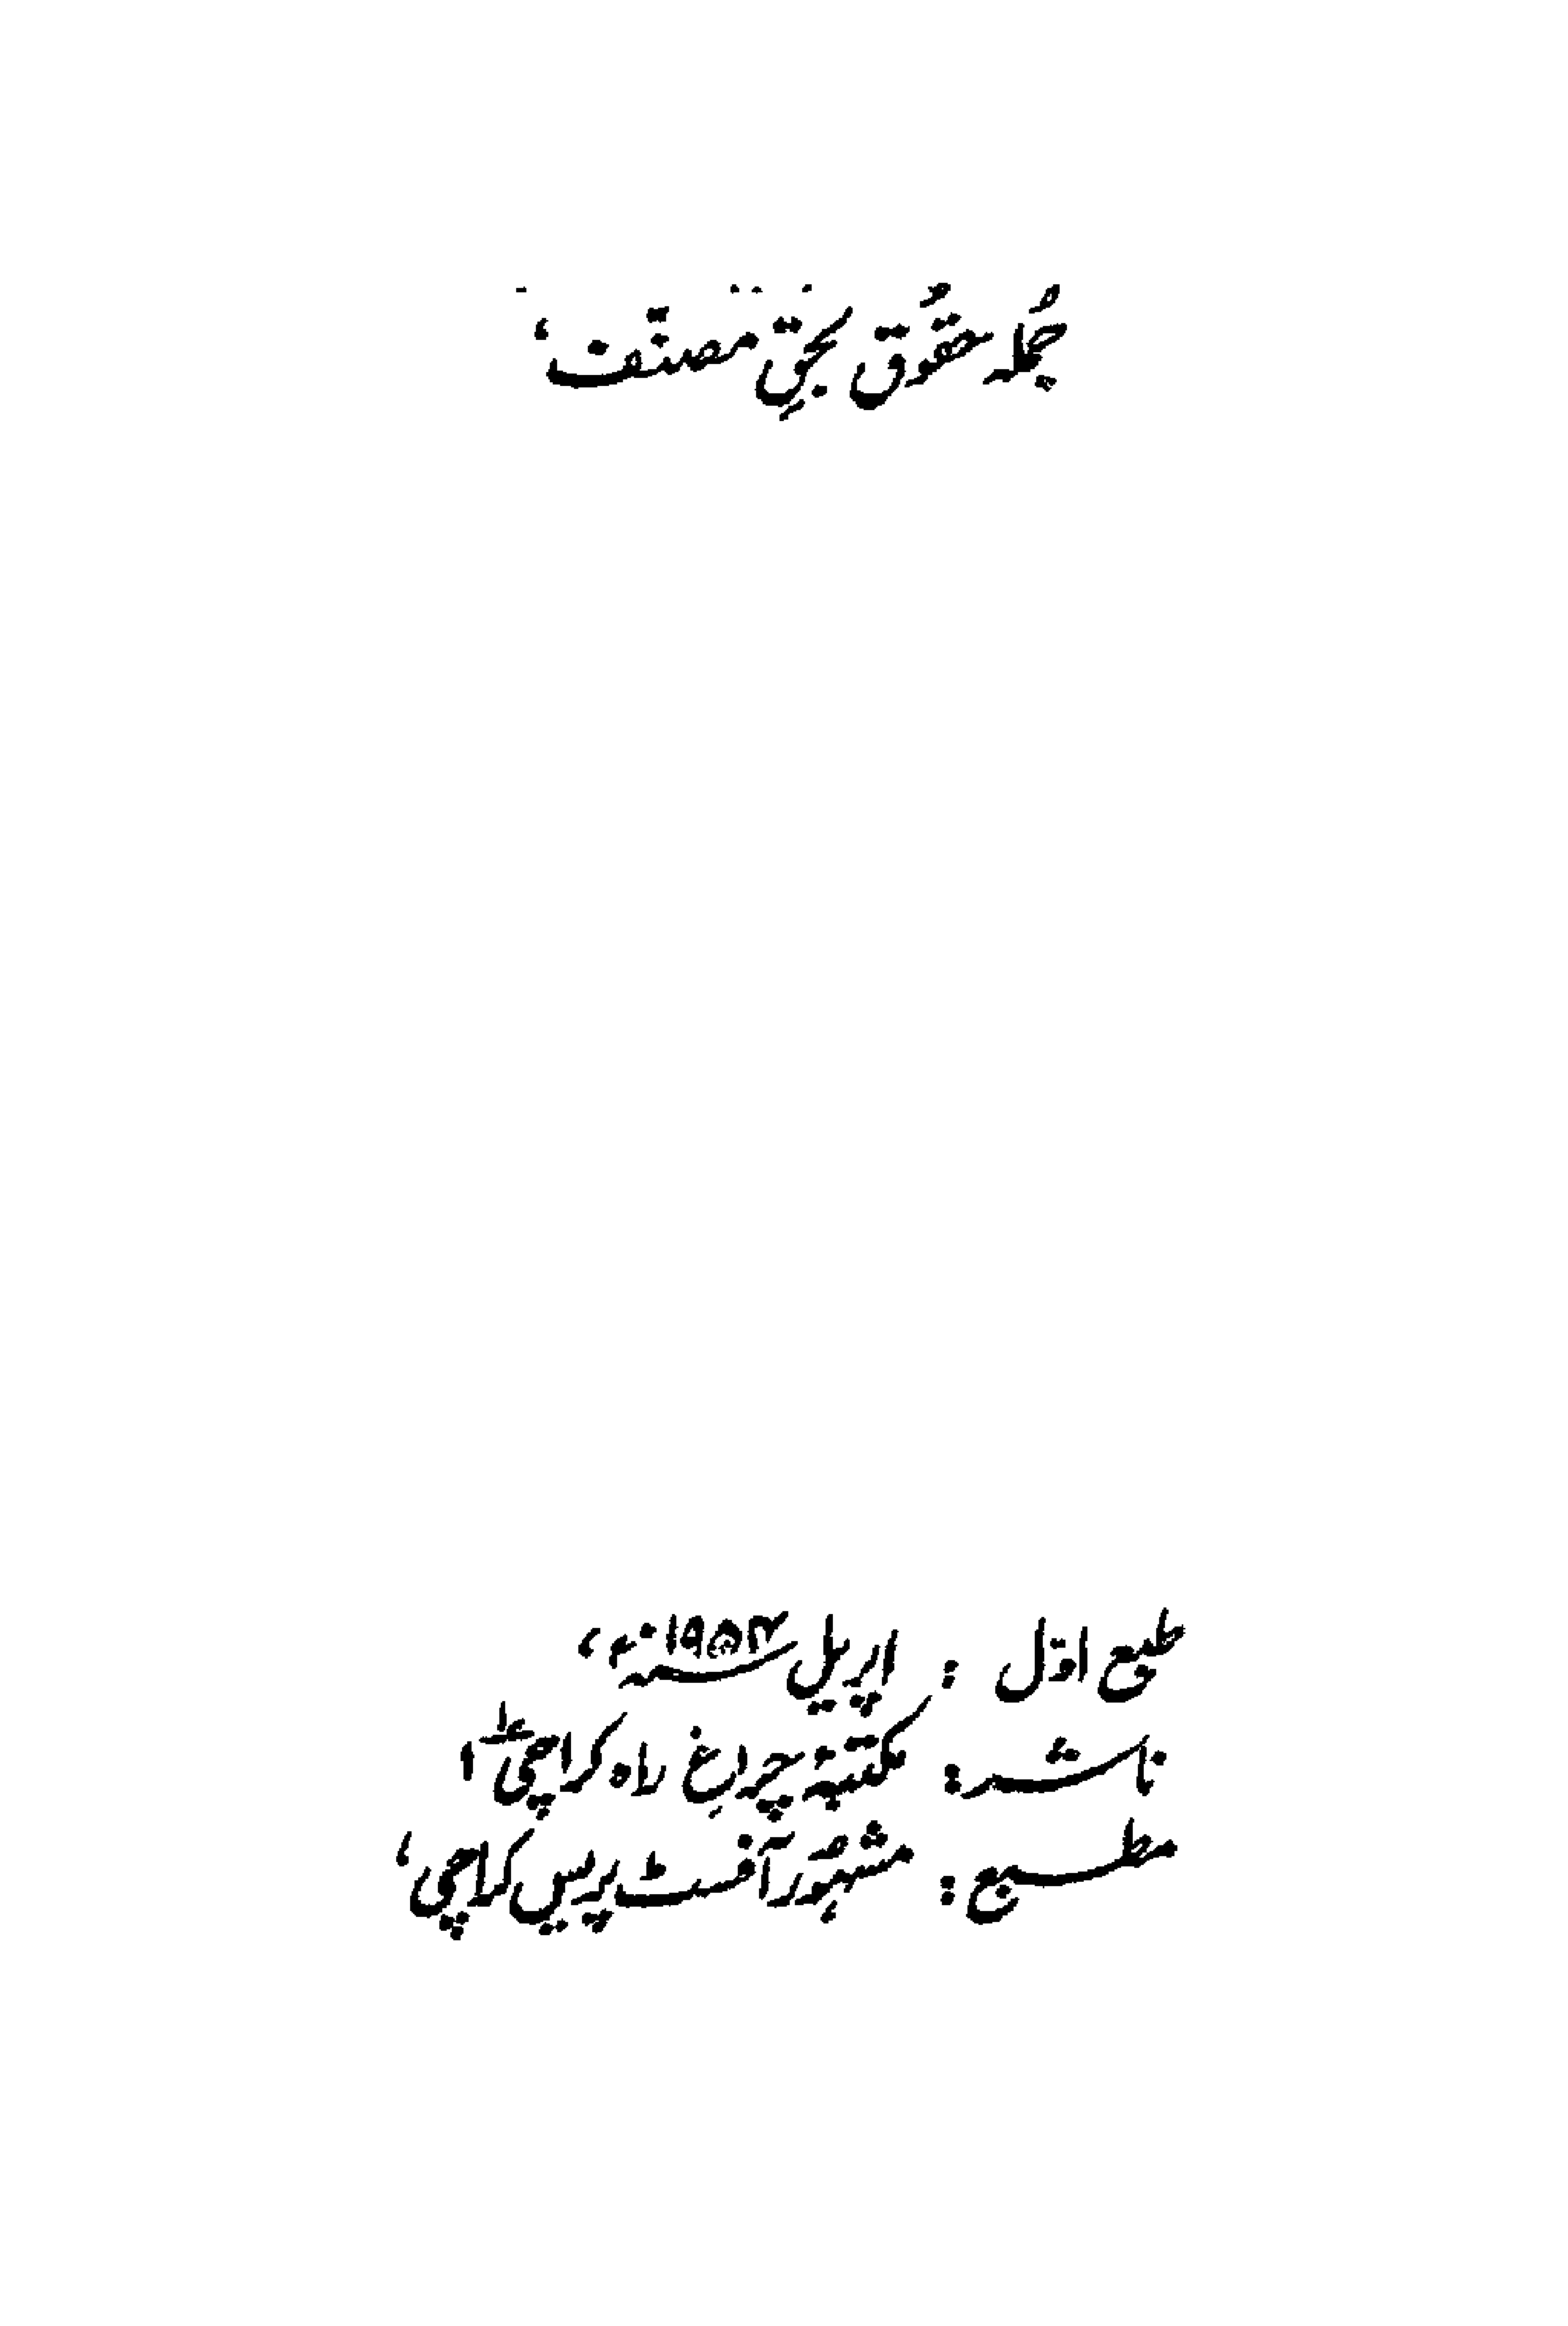 جُملہ حقُوق بحقِ مصنّف،
طبع اوّل : اپریل ۱۹۵۴ء،
ناشر: مکتبۂ چراغِ راہ کراچی ۱
مطبع: مشہُور آفسٹ پریس کراچی،